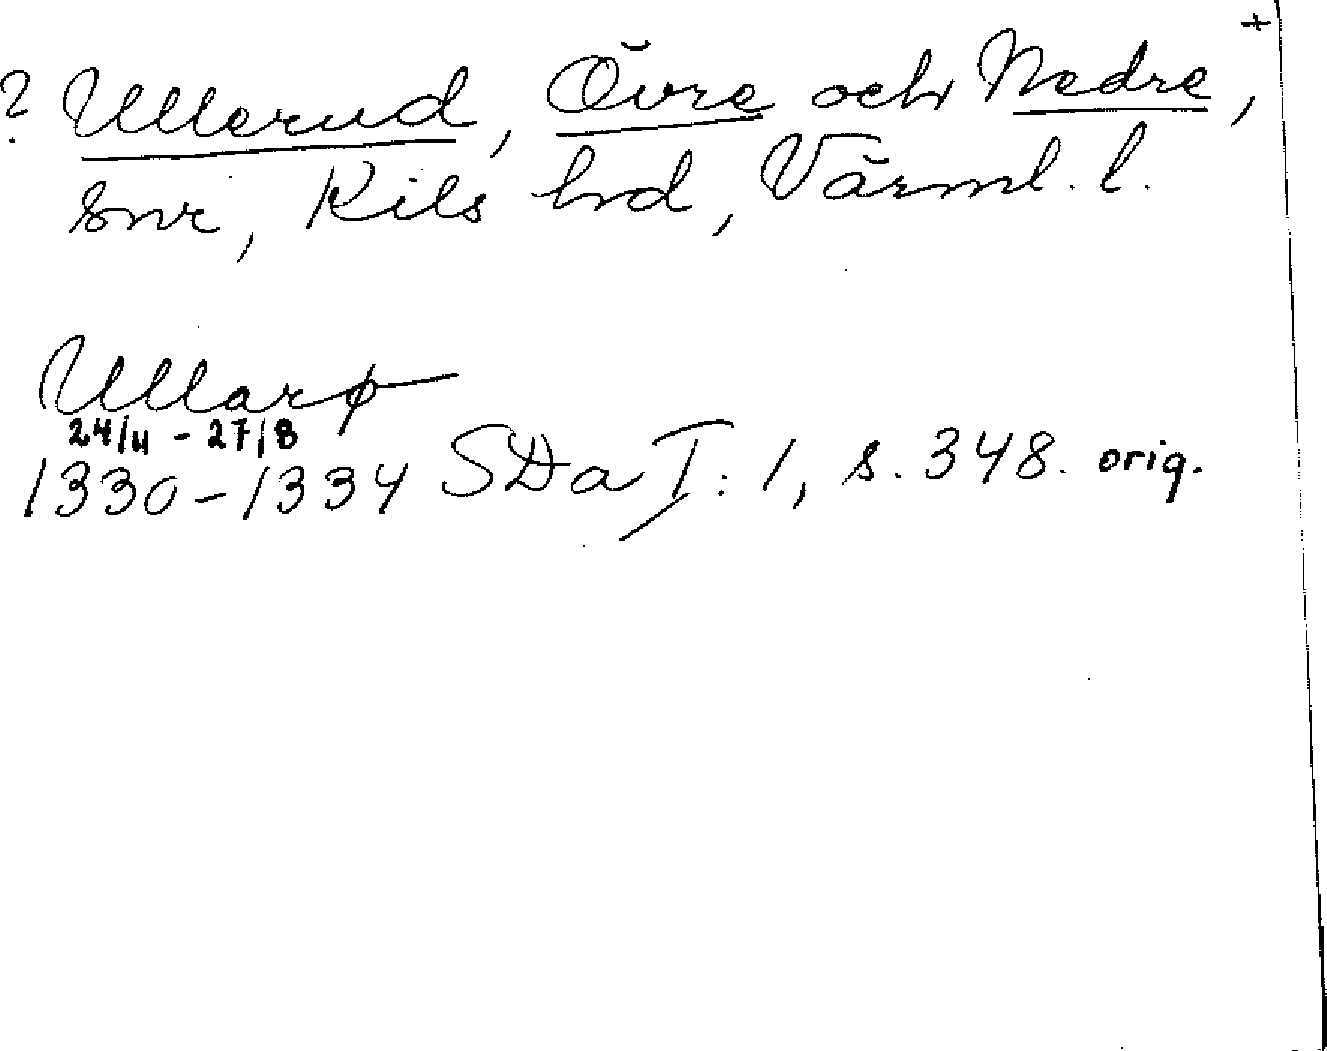 +
? Ullerud, Övre och Nedre,
snr, Kils hd, Värml. l.
Ullarø
24/11 - 27/8
1330-1334 SDa I: 1, s. 348. orig.